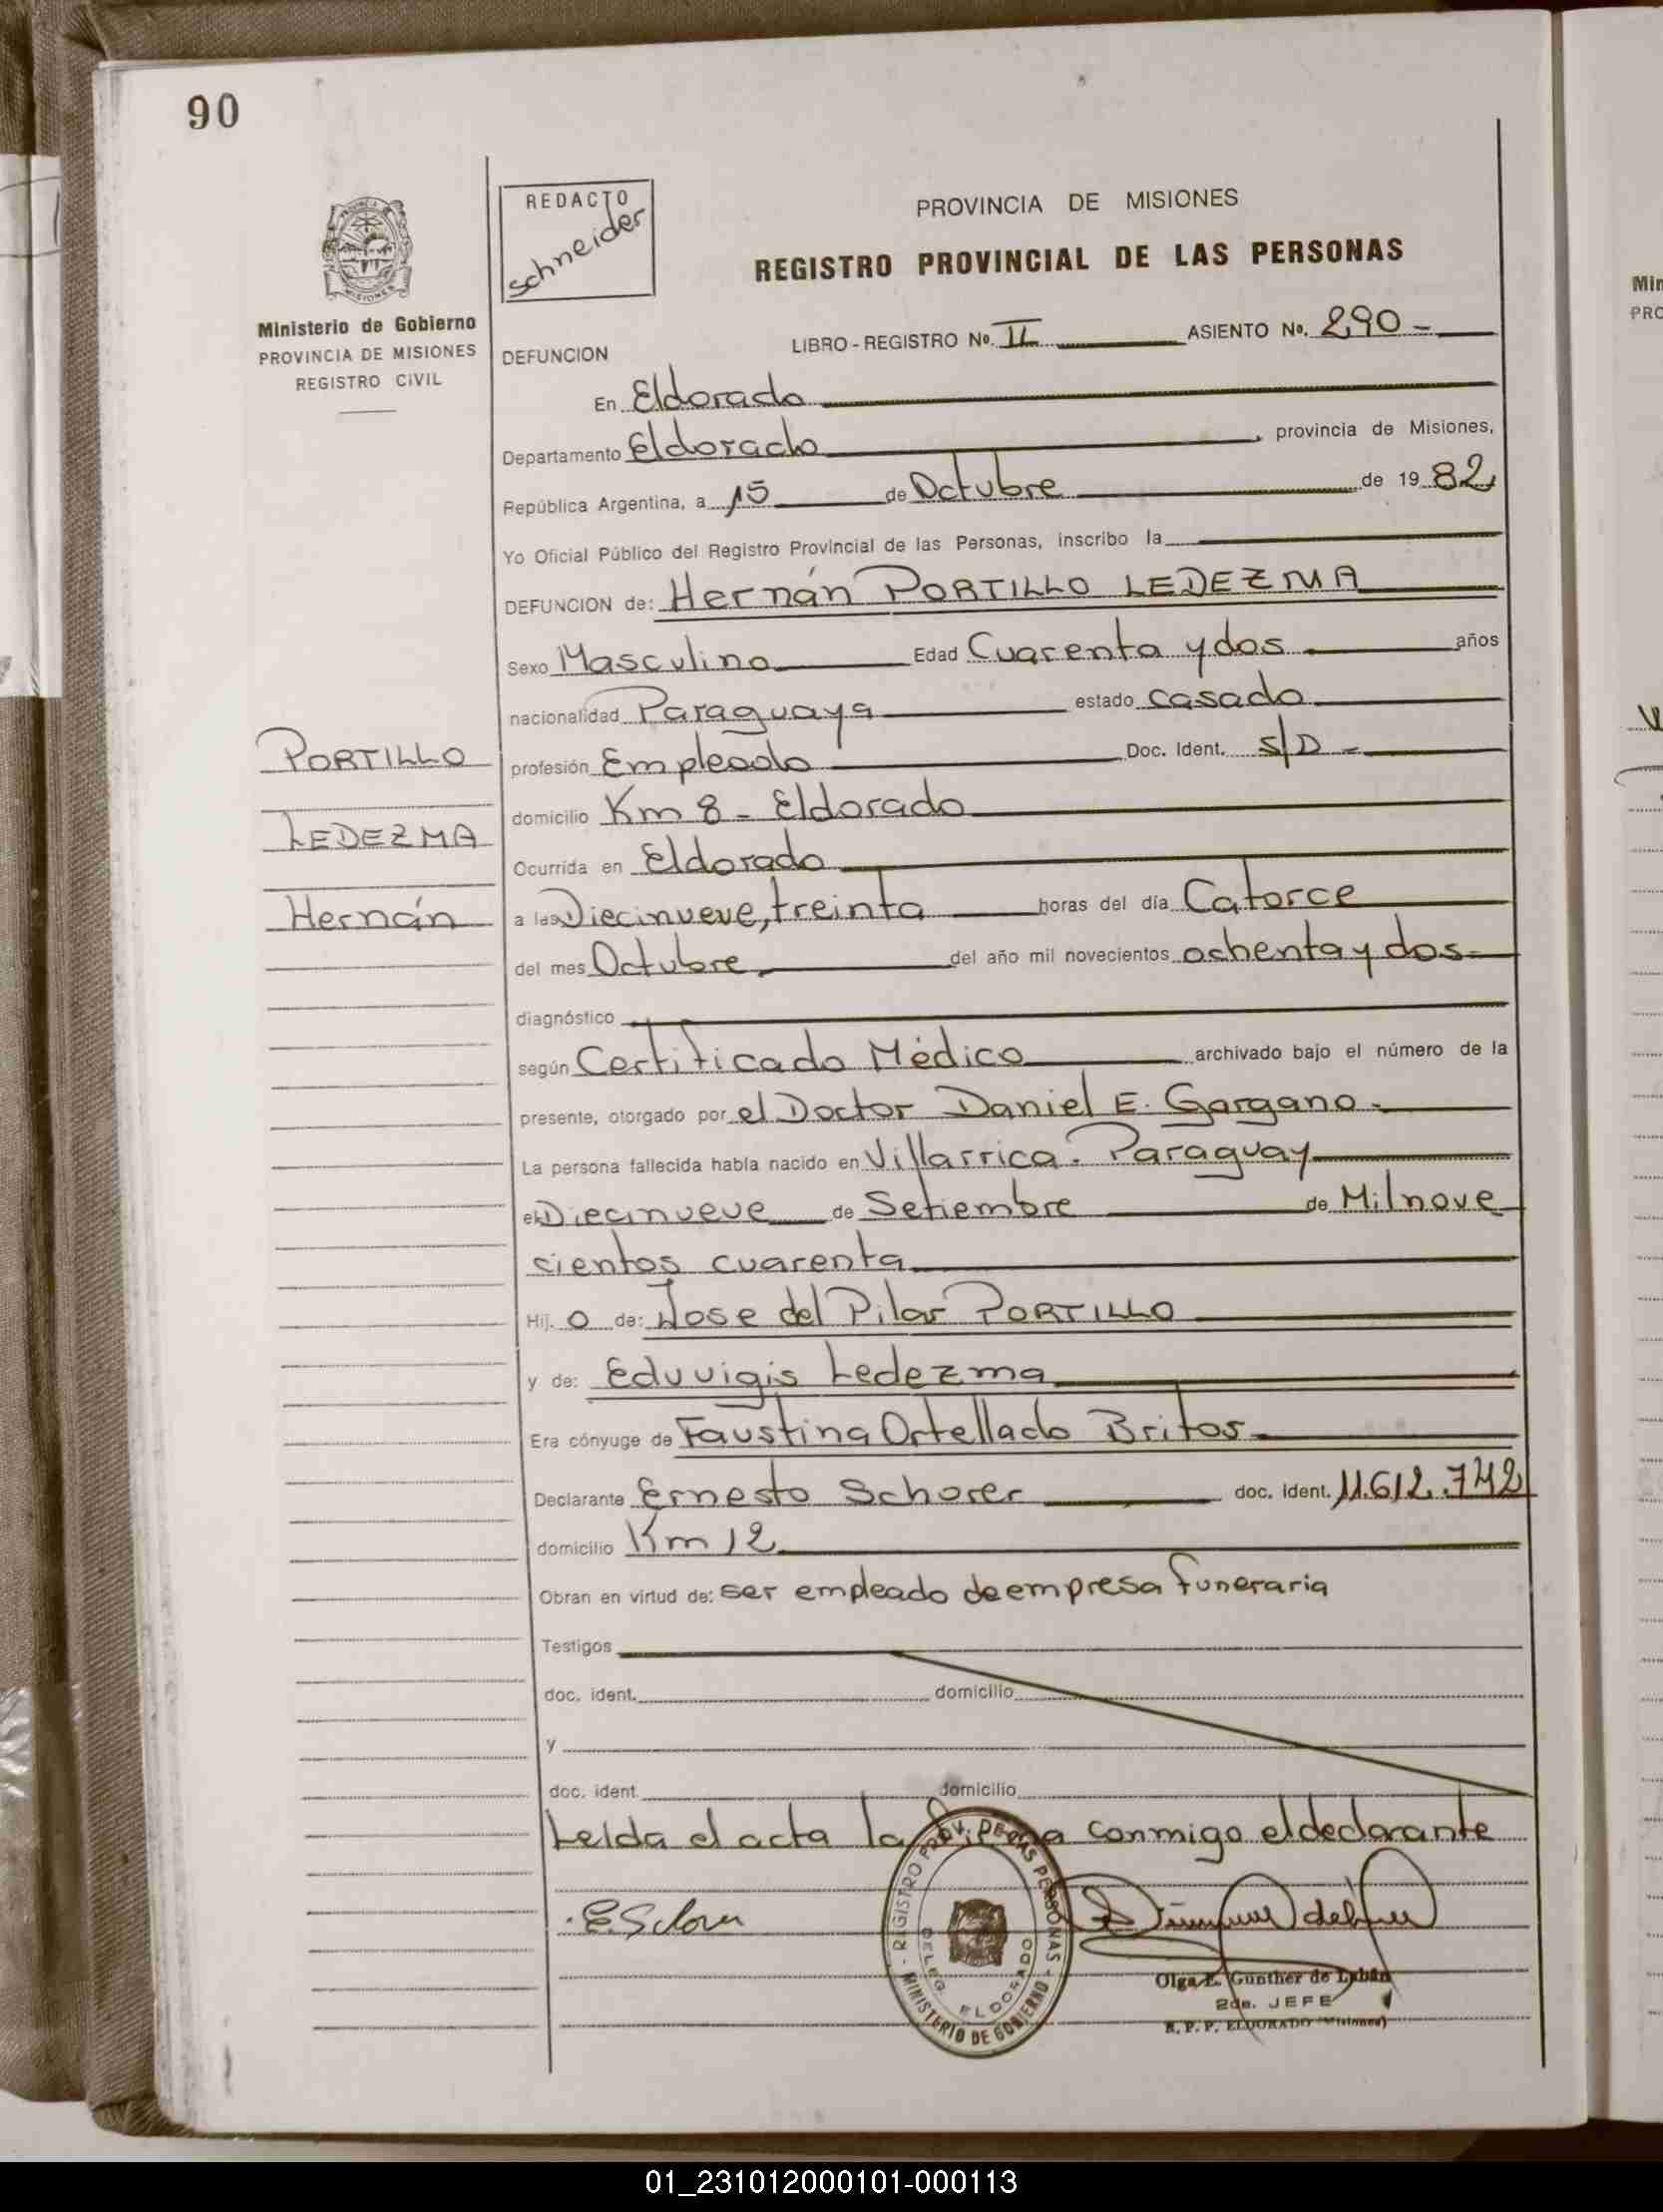 90
REDACTO
Schneider
PROVINCIA DE MISIONES
REGISTRO PROVINCIAL DE LAS PERSONAS
Ministerio de Gobierno
PROVINCIA DE MISIONES
REGISTRO CIVIL
DEFUNCION LIBRO - REGISTRO No. II ASIENTO No. 290 -
En Eldorado
Departamento Eldorado , provincia de Misiones,
República Argentina, a 15 de Octubre de 19 82
Yo Oficial Público del Registro Provincial de las Personas, inscribo la
DEFUNCION de: Hernán PORTILLO LEDEZMA
Sexo Masculino Edad Cuarenta y dos años
nacionalidad Paraguaya estado casado
PORTILLO
LEDEZMA
Hernán
profesión Empleado Doc. Ident. S/D -
domicilio Km 8 - Eldorado
Ocurrida en Eldorado
a las Diecinueve, treinta horas del día Catorce
del mes Octubre del año mil novecientos ochenta y dos -
diagnóstico
según Certificado Médico archivado bajo el número de la
presente, otorgado por el Doctor Daniel E. Gargano -
La persona fallecida había nacido en Villarrica - Paraguay
el Diecinueve de Setiembre de Mil nove
cientos cuarenta
Hij o de: Jose del Pilar PORTILLO
y de: Eduvigis Ledezma
Era cónyuge de Faustina Ortellado Britos
Declarante Ernesto Schorer doc. ident. 11.612.742
domicilio Km 12
Obran en virtud de: ser empleado de empresa funeraria
Testigos
doc. ident. domicilio
y
doc. ident. domicilio
Leida el acta la firma conmigo el declarante
REGISTRO PROV. DE LAS PERSONAS - MINISTERIO DE GOBIERNO -
DELEG. ELDORADO
Olga E. Gunther de
2da. JEFE
R. P. P. ELDORADO (Misiones)
Min
PRO
01_231012000101-000113